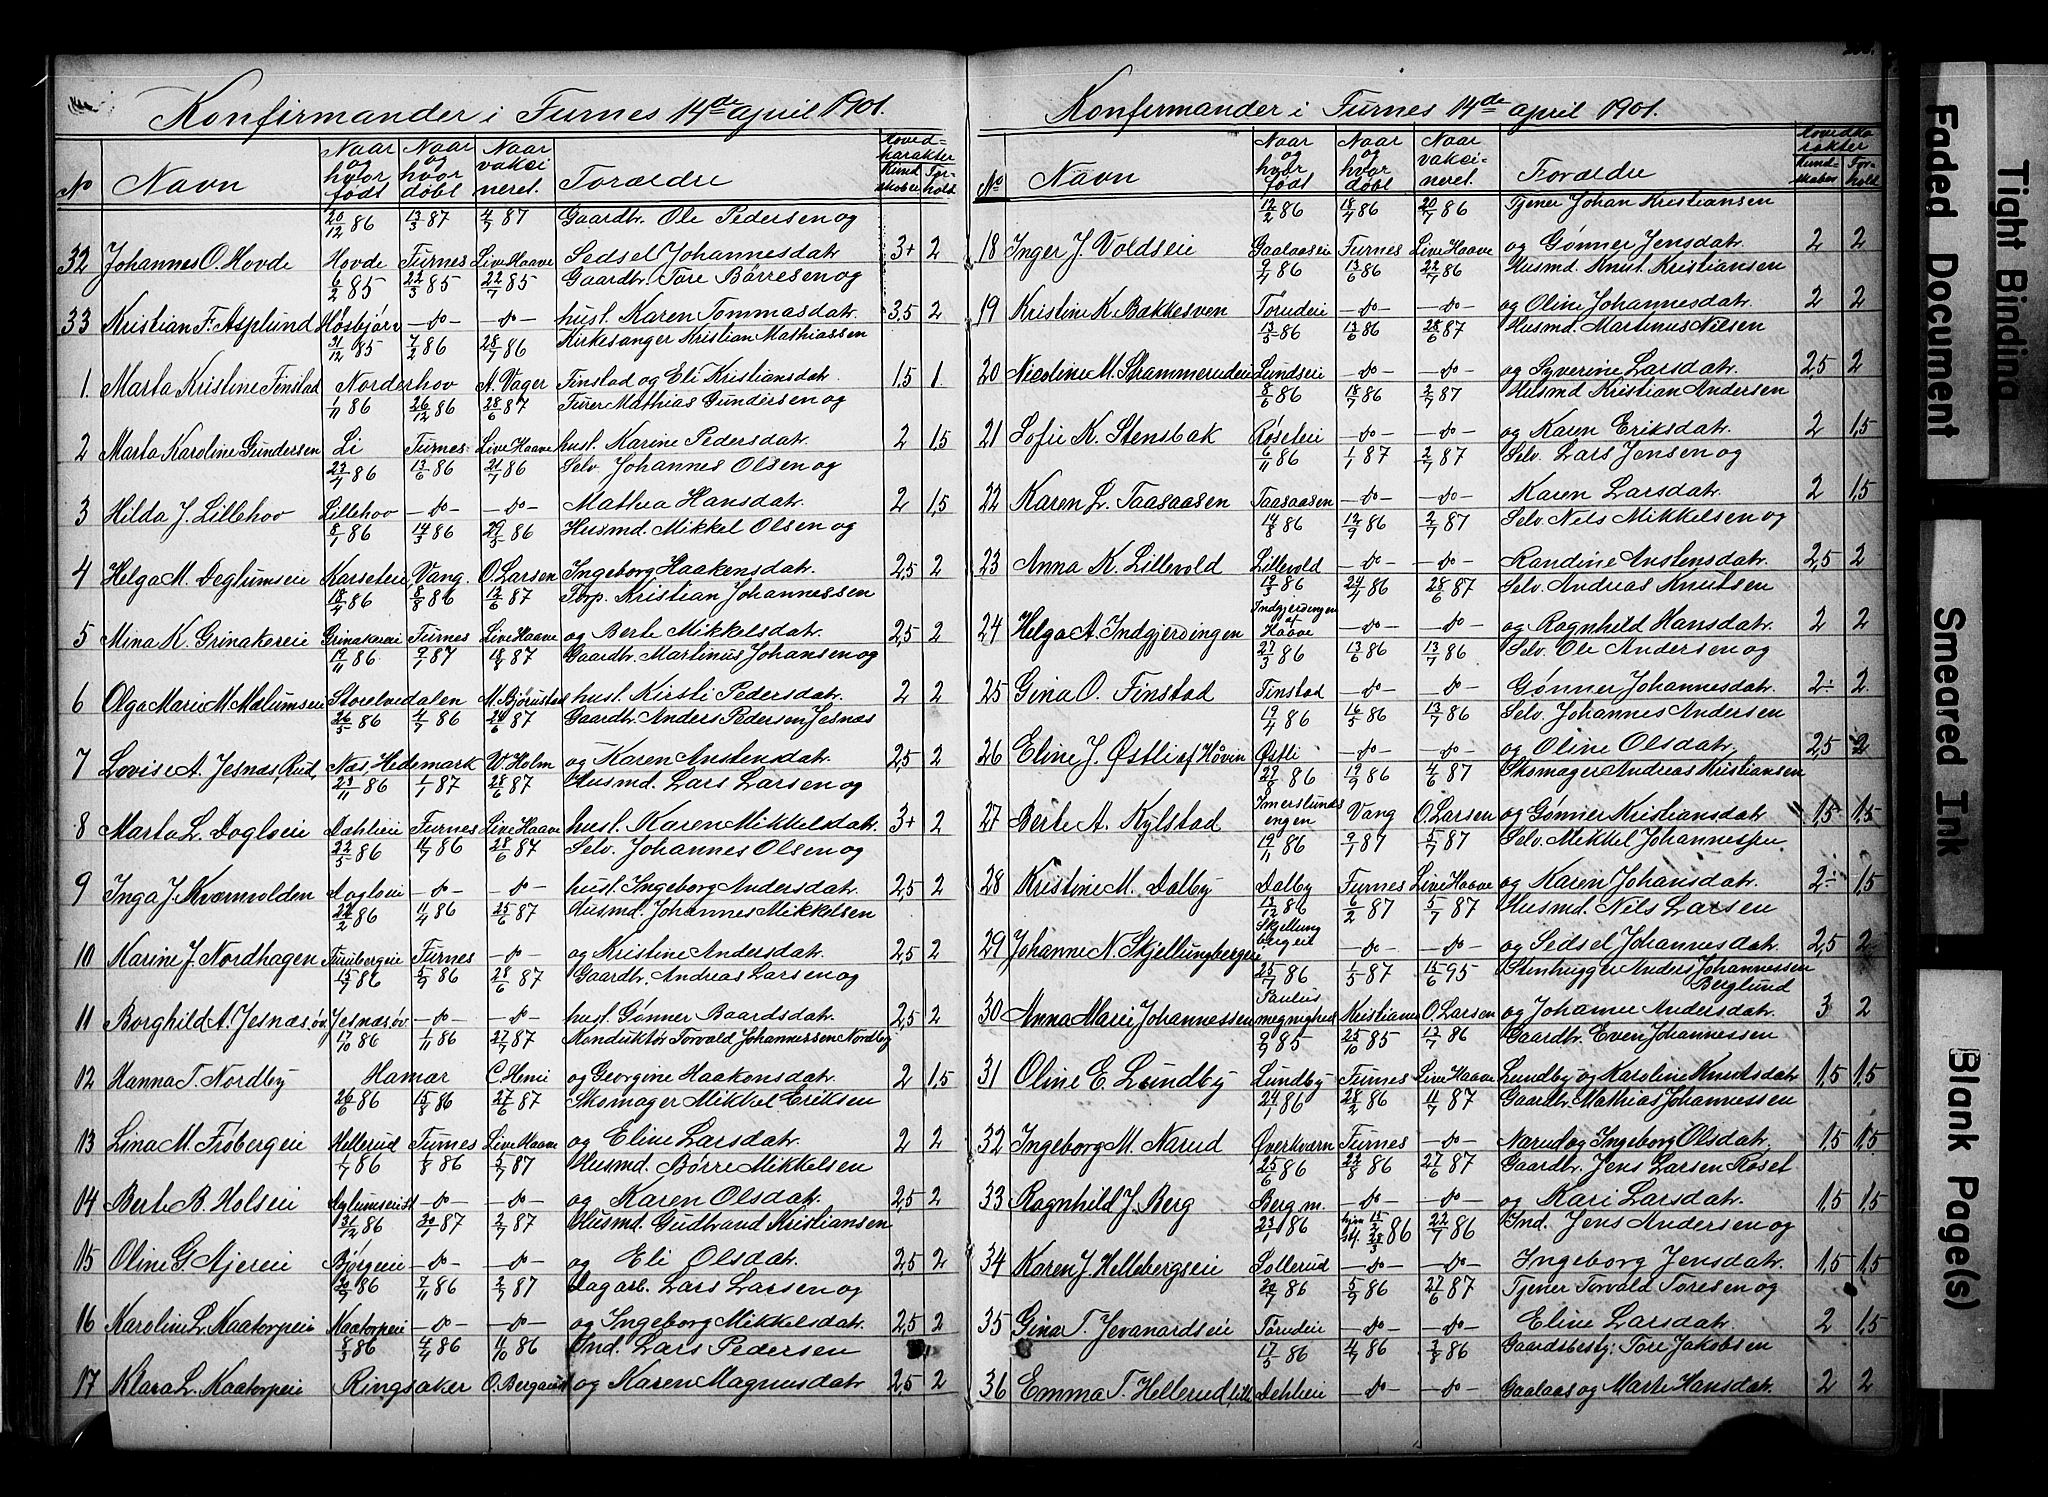 Konfirmander i Furnes 14de april 1901.
No Navn Naar og hvor født Naar og hvor døbt Naar vakcineret. Forældre Hovedkarakter Kundskaber Forhold
20/12 86 13/3 87 4/7 87 Gaardbr. Ole Pedersen og
32 Johannes O. Hovde Hovde Furnes Live Haave Sedsel Johannesdatr. 3+ 2
6/2 85 22/3 85 22/7 85 Gaardbr. Tore Børresen og
33 Kristian F. Asplund Høsbjør -do- -do- hust. Karen Tommasdatr. 3,5 2
21/12 85 7/2 86 28/7 86 Kirkesanger Kristian Mathiassen
1. Marta Kristine Finstad Norderhov A. Vager Finstad og Eli Kristiansdatr. 1,5 1.
1/11 86 26/12 86 28/6 87 Furer Mathias Gundersen og
2 Marta Karoline Gundersen Li Furnes Live Haave hust. Karine Pedersdatr. 2 1,5
23/4 86 13/6 86 21/7 86 Selv. Johannes Olsen og
3 Hilda J. Lillehov Lillehov -do- -do- Mathea Hansdatr. 2 1,5
8/1 86 14/3 86 29/5 86 Husmd. Mikkel Olsen og
4 Helga M. Deglumseie Karseteie Vang. O. Larsen Ingeborg Haakensdatr. 2,5 2
18/7 86 8/8 86 13/6 87 Forp. Kristian Johannessen
5 Mina K. Grinakereie Grinakereie Furnes Live Haave og Berte Mikkelsdatr. 2,5 2
19/11 86 9/1 87 18/7 87 Gaardbr. Martinus Johansen og
6 Olga Marie M. Mælumseie Storelvedalen M. Bjørnstad hust. Kirsti Pedersdatr. 2 2
26/5 86 2/7 86 24/6 87 Gaardbr. Anders Pedersen Jesnæs
7 Lovise A. Jesnæs, Rud, Næs Hedemark W. Holm og Karen Anstensdatr. 2,5 2
23/11 86 1/1 87 28/6 87 Husmd. Lars Larsen og
8 Marta L. Dogloeie Dahleie Furnes Live Haave hust. Karen Mikkelsdatr. 3+ 2
22/5 86 11/7 86 28/6 87 Selv. Johannes Olsen og
9 Inga J. Kværnvolden Dogloeie -do- -do- hust. Ingeborg Andersdatr. 2,5 2
22/2 86 11/4 86 25/6 87 Husmd. Johannes Mikkelsen
10 Karine J. Nordhagen Furubergeie Furnes -do- og Kristine Andersdatr. 2,5 2
15/7 86 5/9 86 28/6 87 Gaardbr. Andreas Larsen og
11 Borghild A. Jesnæs, øv. Jesnæs, øv. -do- -do- hust. Gønner Baardsdatr. 2,5 2
17/10 86 1/11 86 27/7 87 Konduktør Torvald Johannessen Nordby
12 Hanna T. Nordby Hamar og Georgine Haakonsdatr. 2 1,5
26/6 86 15/8 86 27/6 87 Skomager Mikkel Eriksen
13 Lina M. Frøbergeie Hellerud Furnes Live Haave og Eline Larsdatr. 2 2
1/7 86 1/8 86 5/7 87 Husmd. Børre Mikkelsen
14 Berte B. Holseie -do- -do- og Karen Olsdatr. 2,5 2
31/12 86 30/1 87 2/7 87 Husmd. Gudbrand Kristiansen
15 Oline G. Ajereie Bjørgeie -do- -do- og Eli Olsdatr. 2,5 2
20/9 86 7/11 86 2/7 87 Dagarb. Lars Larsen og
16 Karoline L. Kaatorpeie Kaatorpeie -do- -do- og Ingeborg Mikkelsdatr. 2,5 2
8/3 86 4/4 86 11/10 86 Ind. Lars Pedersen
17 Klara L. Kaatorpeie Ringsaker O. Bergaust og Karen Magnusdatr. 2,5 2
Konfirmander i Furnes 14de april 1901.
No Navn Naar og hvor født Naar og hvor døbt Naar vakcineret. Forældre Hovedkarakter Kundskaber Forhold
12/2 86 18/4 86 20/7 86 Tjener Johan Kristiansen
18 Inger J. Voldseie Gaalaaseie Furnes Live Haave og Gønner Jensdatr. 2 2
9/4 86 13/6 86 22/7 86 Husmd. Knut Kristiansen
19 Kristine K. Bakkesven Tørudeie -do- -do- og Oline Johannesdatr. 2 2
13/5 86 13/6 86 28/6 87 Husmd. Martinus Nilsen
20 Nicoline M. Strammerudeie Lundseie -do- -do- og Syverine Larsdatr. 2,5 2
8/6 86 18/7 86 2/7 87 Husmd Kristian Andersen
21 Sofie K. Stensbak Røseteie -do- -do- og Karen Eriksdatr. 2 1,5
6/11 86 1/1 87 2/7 87 Selv. Lars Jensen og
22 Karen L. Taasaasen Taasaasen -do- -do- Karen Larsdatr. 2 1,5
14/8 86 12/9 86 2/7 87 Selv. Nels Mikkelsen og
23 Anna K. Lillevold Lillevold -do- -do- Randine Anstensdatr. 2,5 2
19/3 86 24/4 86 28/6 87 Selv. Andreas Knutsen
24 Helga A. Indgjerdingen Indgjerdingen af Haave -do- -do- og Ragnhild Hansdatr. 2 2
27/3 86 13/6 86 13/7 86 Selv. Ole Andersen og
25 Gina O. Finstad Finstad -do- -do- Gønner Johannesdatr. 2÷ 2
19/4 86 16/5 86 13/7 86 Selv. Johannes Andersen
26 Eline J. Østli af Hovin Østli -do- -do- og Oline Olsdatr. 2,5 2
29/8 86 19/9 86 4/6 87 Skomager Andreas Kristiansen
27 Berte A. Kylstad Imerslundsengen Vang O. Larsen og Gønner Kristiansdatr. 1,5 1,5
19/11 86 9/1 87 5/7 87 Selv. Mikkel Johannessen
28 Kristine M. Dalby Dalby Furnes Live Haave og Karen Johansdatr. 2÷ 1,5
13/12 86 6/2 87 5/7 87 Husmd. Nils Larsen
29 Johanne N. Skjellungbergeie Skjellungbergeie -do- -do- og Sedsel Johannesdatr. 2,5 2
25/7 86 1/5 87 15/6 95 Stenhugger Anders Johannessen Berglund
30 Anna Marie Johannessen Paulus megnighed Kristiania O. Larsen og Johanne Andersdatr. 3 2
9/9 85 25/10 85 13/7 86 Gaardbr. Even Johannessen
31 Oline E. Lundby Lundby Furnes Live Haave Lundby og Karoline Knutsdatr. 1,5 1,5
24/1 86 28/2 86 11/7 87 Gaardbr. Mathias Johannessen
32 Ingeborg M. Narud Øverkværn Furnes -do- Narud og Ingeborg Olsdatr. 1,5 1,5
25/6 86 22/8 86 27/6 87 Gaardbr. Jens Larsen Røset
33 Ragnhild J. Berg Berg m. -do- -do- og Kari Larsdatr. 1,5 1,5
23/1 86 hjem. 15/2 st. 28/3 86 22/7 86 Ind. Jens Andersen og
34 Karen J. Hellebergseie Sollerud -do- -do- Ingeborg Jensdatr. 1,5 1,5
20/7 86 5/9 86 27/6 87 Tjener Torvald Toresen og
35 Gina T. Jevanardseie Tørudeie -do- -do- Eline Larsdatr. 2 1,5
17/5 86 4/7 86 3/8 86 Gaardsbesty: Tore Jakobsen
36 Emma T. Hellerud, lille Dehleie -do- -do- Gaalaas og Marte Hansdatr. 2 2
Tight Binding
Faded Document
Smeared Ink
Blank Page(s)